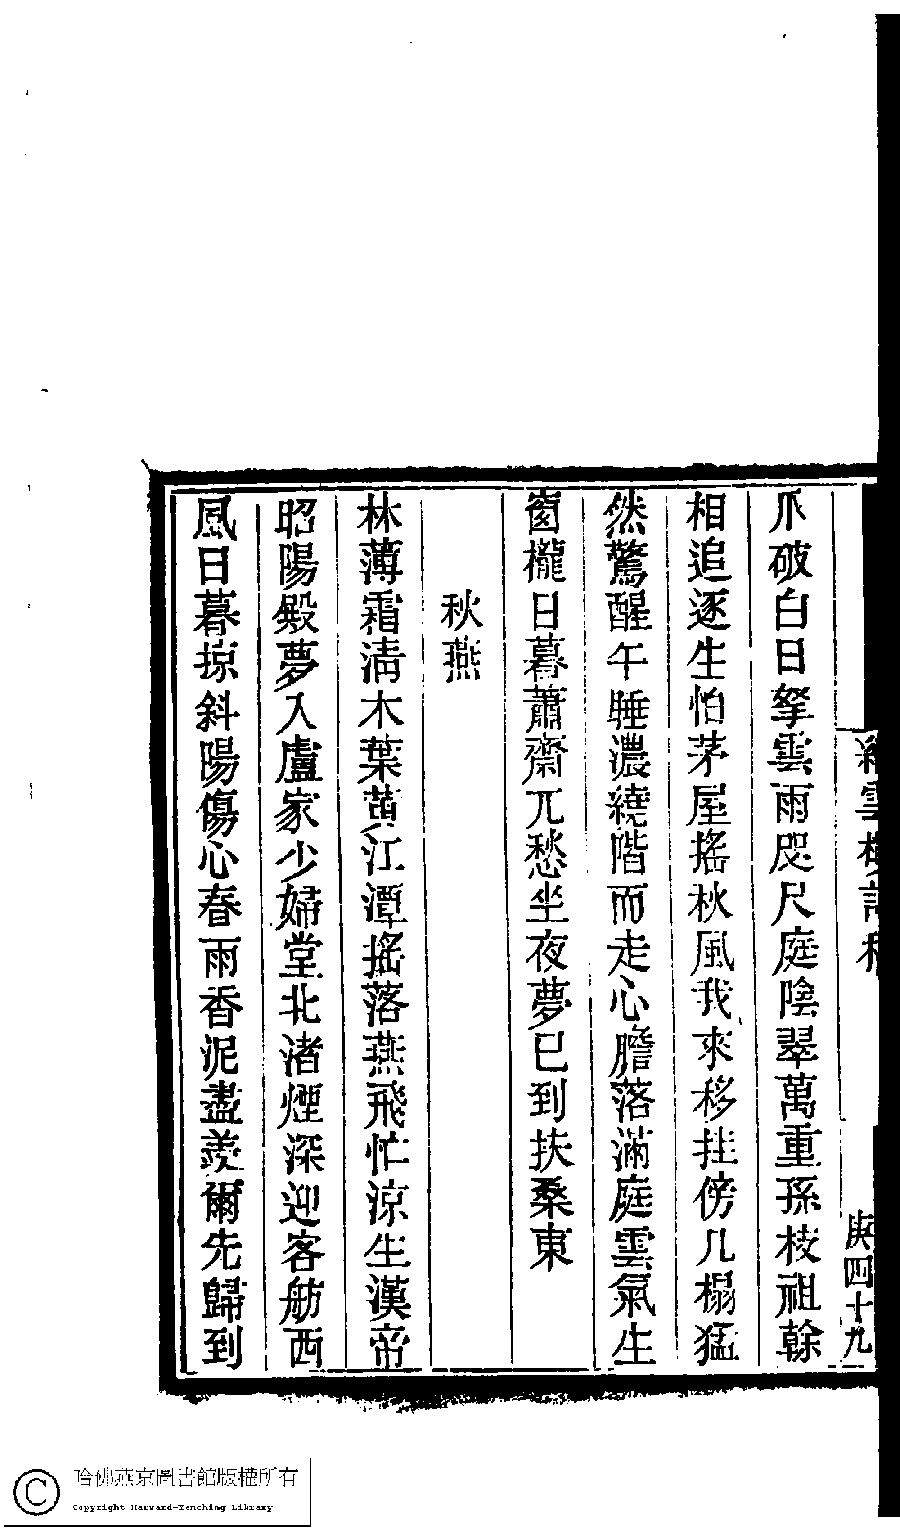 爪破白日拏雲雨咫尺庭陰翠萬重孫枝祖榦
相追逐生怕茅屋搖秋風我來移拄傍几榻猛
然驚醒午睡濃繞階而走心膽落滿庭雲氣生
窗櫳日暮蕭齋兀愁坐夜夢已到扶桑東
秋燕
林薄霜淸木葉黄江潭搖落燕飛忙涼生漢帝
昭陽殿夢入盧家少婦堂北渚煙深迎客舫西
風日暮掠斜陽傷心春雨香泥盡羨爾先歸到
庚四十九
哈佛燕京圖書館版權所有
Copyright Harvard-Yenching Library